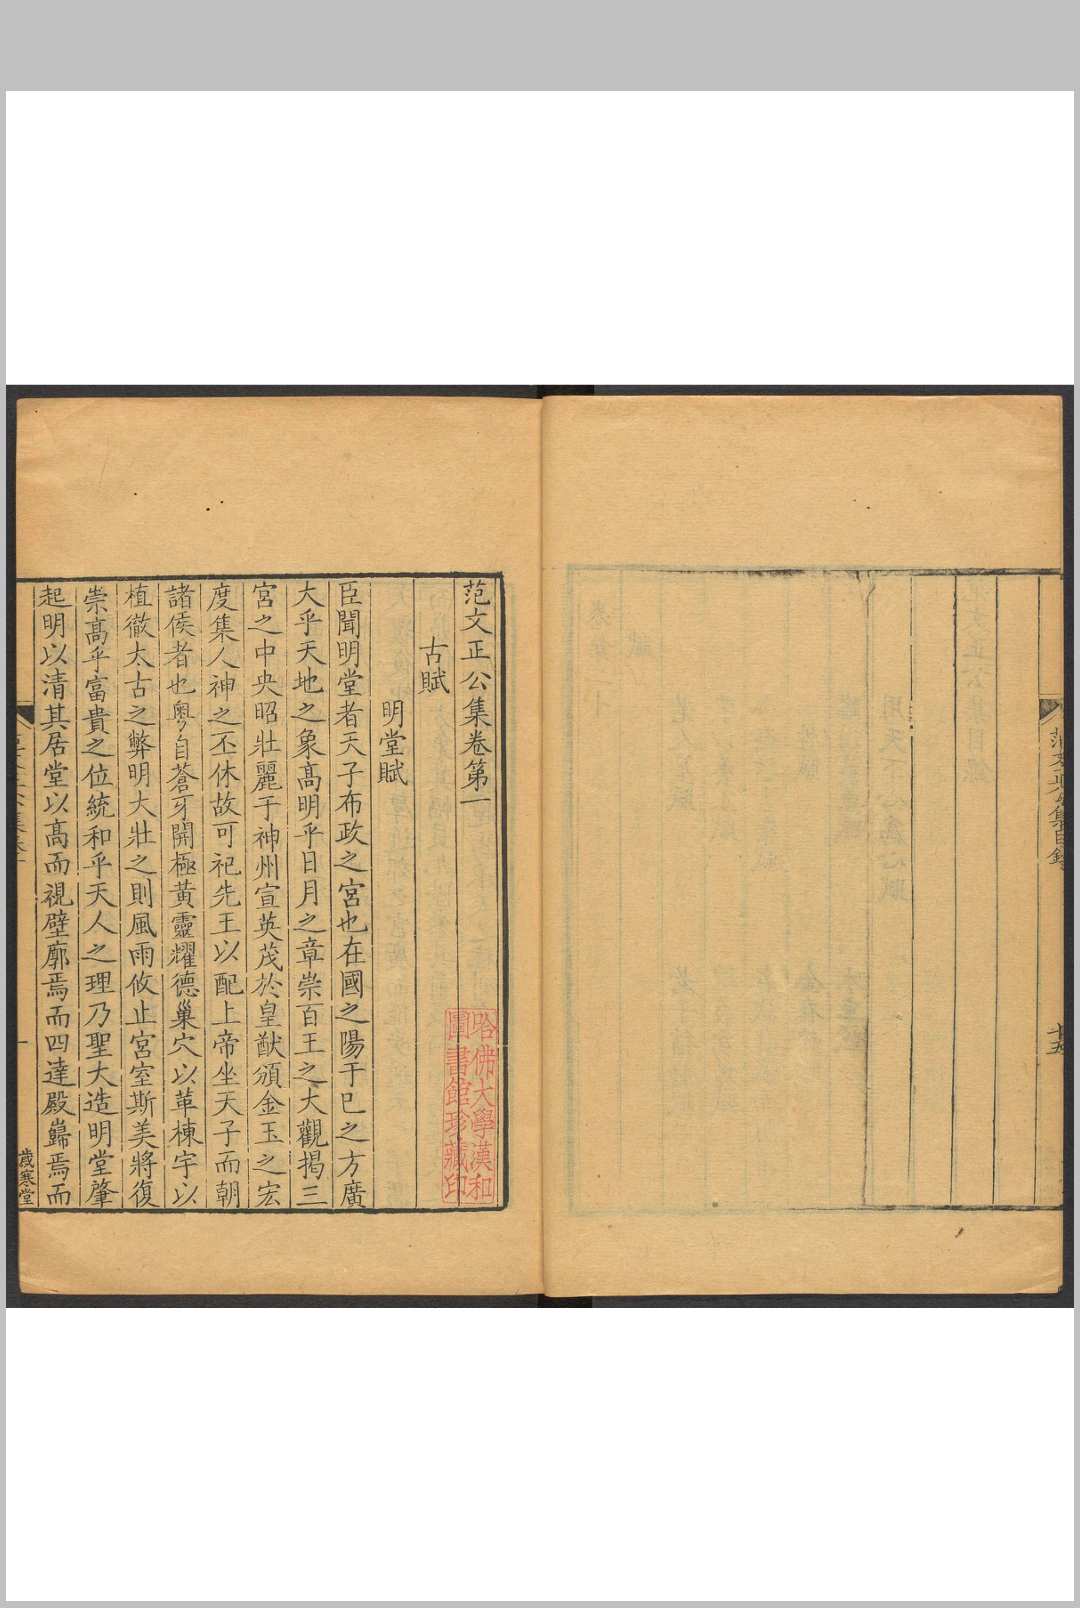 范文正公集目錄
范文正公集卷第一
古賦
明堂賦
臣聞明堂者天子布政之宮也在國之陽于巳之方廣
大乎天地之象髙明乎日月之章崇百王之大觀揭三
宮之中央昭壯麗于神州宣英茂於皇猷頒金玉之宏
度集人神之丕休故可祀先王以配上帝坐天子而朝
諸侯者也粵自蒼牙開極黃靈耀德巢穴以革棟宇以
植徹太古之弊明大壯之則風雨攸止宮室斯美將復
崇髙乎富貴之位統和乎天人之理乃聖大造明堂肇
起明以清其居堂以髙而視壁廓焉而四達殿巋焉而
歲寒堂
哈佛大學漢和
圖書館珍藏印